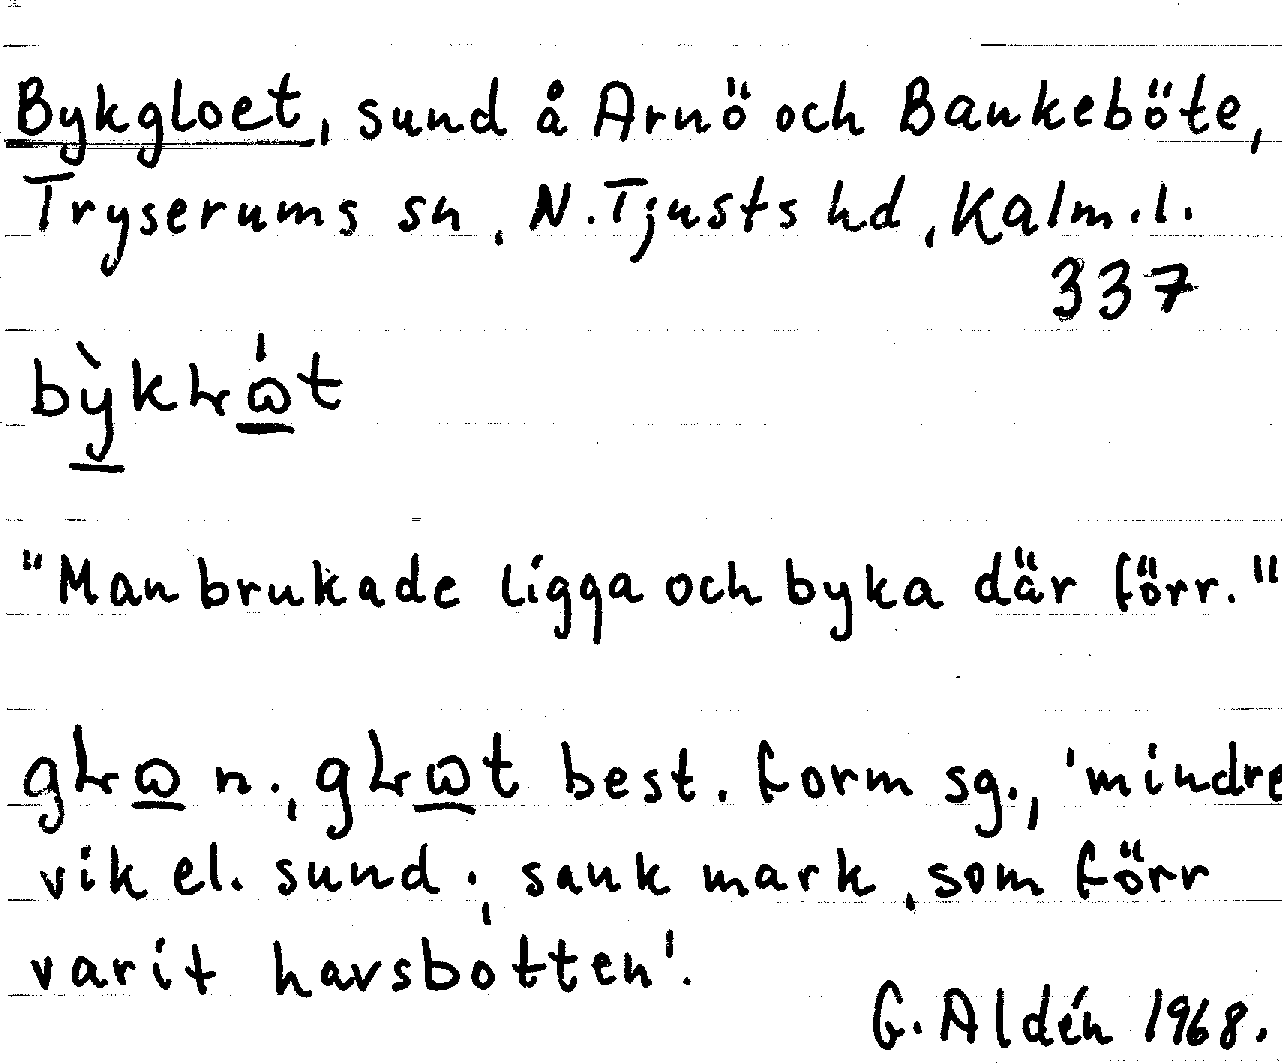 Bykgloet, sund å Arnö och Bankeböte,
Tryserums sn, N. Tjusts hd, Kalm. l.
337
"Man brukade ligga och byka där förr."
n., best. form sg., 'mindre
vik el. sund; sank mark, som förr
varit havsbotten'.
G. Aldén 1968.